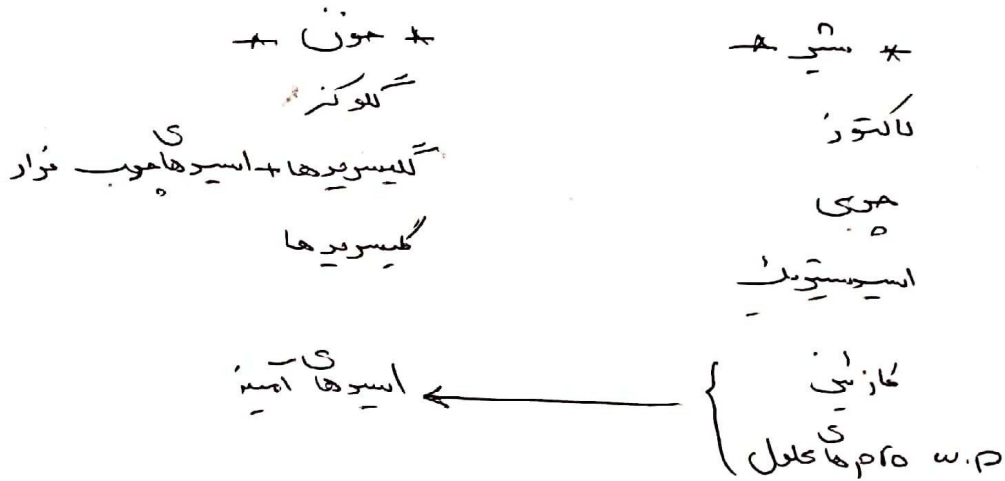 * شیر *
لاکتوز
چربی
اسیدسیتریک
کازئین
pro های محلول w.p
* خون *
گلوکز
گلیسریدها + اسیدهای چرب فرار
گلیسریدها
اسیدهای آمینه